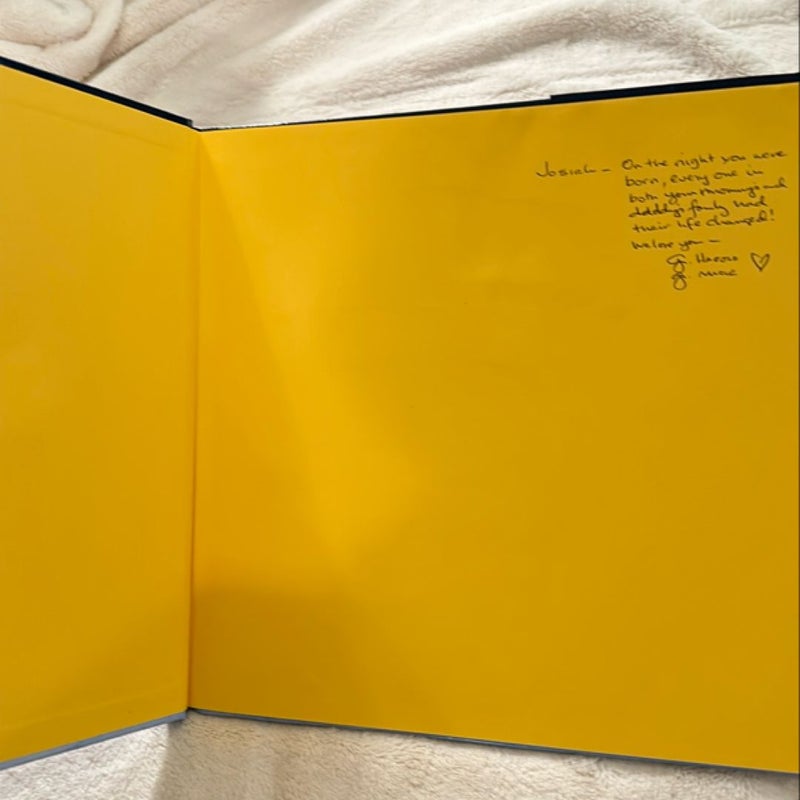 Josiah – On the night you were
born, every one in
both your mommy's and
daddy's family had
their life changed!
We love you –
G.
G.